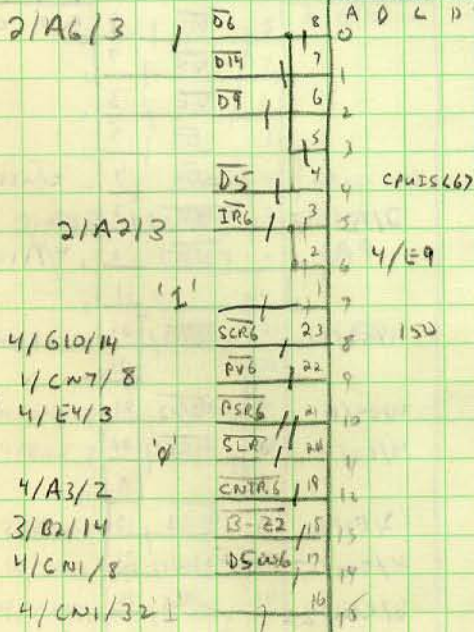 A D L D
2/A6/3 D6 8 0
D14 7 1
D9 6 2
5 3
D5 4 4 CPU15(67)
IR6 3 5
2/A2/3 2 6 4/E9
'1' 1 7
4/G10/14 SCR6 23 8 150
1/CN7/8 PV6 22 9
4/E4/3 PSR6 21 10
'0' SLR 20 11
4/A3/2 CNTR6 19 12
3/B2/14 B-Z2 18 13
4/CN1/8 DSW6 17 14
4/CN1/32 '1' 16 15